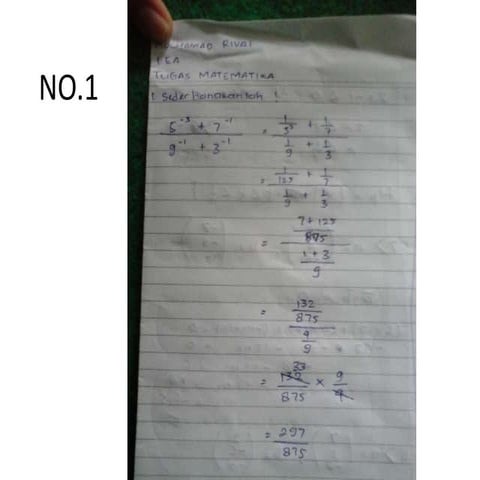 NO.1
MOCHAMAD RIVAI
TUGAS MATEMATIKA
! Sederhanakanlah !
5⁻³ + 7⁻¹ / 9⁻¹ + 3⁻¹ = 1/5³ + 1/7 / 1/9 + 1/3
= 1/125 + 1/7 / 1/9 + 1/3
= 7 + 125 / 875 / 1 + 3 / 9
= 132/875 / 4/9
= 33 132/875 × 9/4
= 297/875